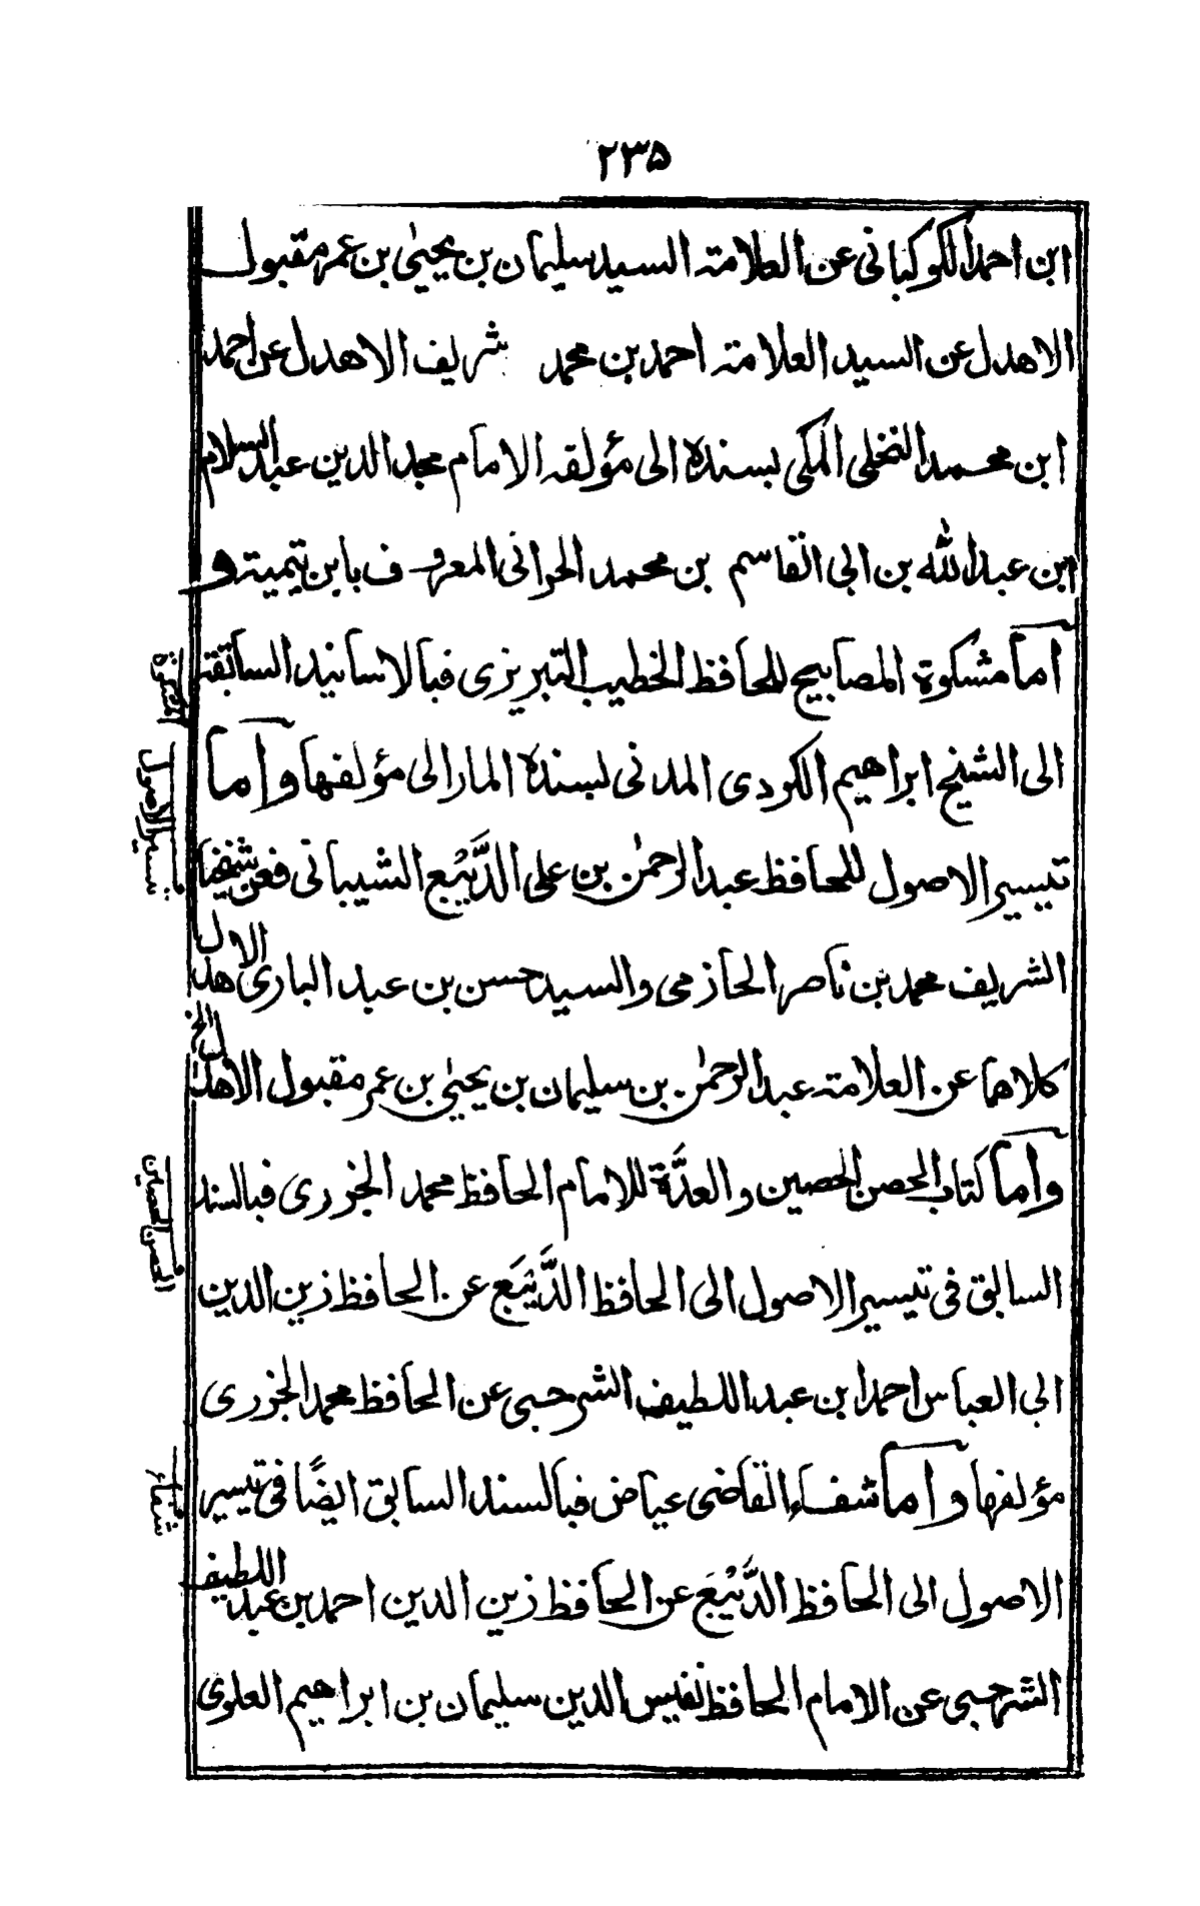 ٢٣٥
ابن احمد الكوكبانى عن العلامة السيد سليمان بن يحيىٰ بن عمر مقبول
الاهدل عن السيد العلامة احمد بن محمد شريف الاهدل عن احمد
ابن محمد النخلى المكى بسنده الى مؤلفه الامام مجد الدين عبد السلام
ابن عبد الله بن ابى القاسم بن محمد الحرانى المعروف بابن تيمية و
اما مشكوة المصابيح للحافظ الخطيب التبريزى فبالاسانيد السابقة
المشكوة
الى الشيخ ابراهيم الكردى المدنى بسنده المار الى مؤلفها واما
تيسير الاصول
تيسير الاصول للحافظ عبد الرحمٰن بن على الدَّيْبَع الشيبانى فعن شيخنا
الشريف محمد بن ناصر الحازمى والسيد حسن بن عبد البارى الاهدل
كلاهما عن العلامة عبد الرحمٰن بن سليمان بن يحيىٰ بن عمر مقبول الاهدل الخ
واما كتاب الحصن الحصين والعدَّة للامام الحافظ محمد الجزرى فبالسند
الحصن الحصين
السابق فى تيسير الاصول الى الحافظ الدَّيْبَع عن الحافظ زين الدين
ابى العباس احمد ابن عبد اللطيف الشرجى عن الحافظ محمد الجزرى
مؤلفها واما شفاء القاضى عياض فبالسند السابق ايضًا فى تيسير
شفاء
الاصول الى الحافظ الدَّيْبَع عن الحافظ زين الدين احمد بن عبد اللطيف
الشرجى عن الامام الحافظ نفيس الدين سليمان بن ابراهيم العلوى